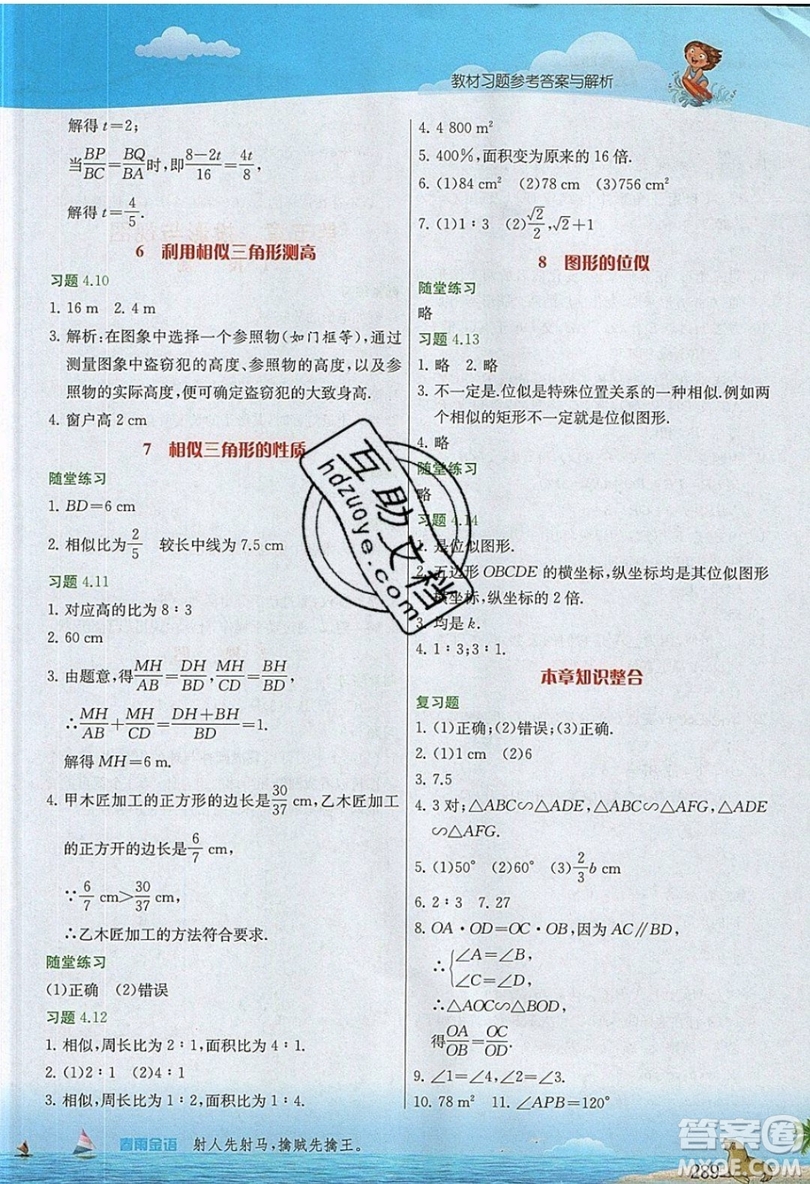 教材习题参考答案与解析
解得t=2;
当BP/BC=BQ/BA时,即(8-2t)/16=4t/8,
解得t=4/5.
6 利用相似三角形测高
习题 4.10
1. 16 m 2. 4 m
3. 解析:在图象中选择一个参照物(如门框等),通过
测量图象中盗窃犯的高度、参照物的高度,以及参
照物的实际高度,便可确定盗窃犯的大致身高.
4. 窗户高2 cm
7 相似三角形的性质
随堂练习
1. BD=6 cm
2. 相似比为2/5 较长中线为7.5 cm
习题 4.11
1. 对应高的比为8∶3
2. 60 cm
3. 由题意,得MH/AB=DH/BD,MH/CD=BH/BD,
∴MH/AB+MH/CD=(DH+BH)/BD=1.
解得MH=6 m.
4. 甲木匠加工的正方形的边长是30/37 cm,乙木匠加工
的正方开的边长是6/7 cm,
∵6/7 cm>30/37 cm,
∴乙木匠加工的方法符合要求.
随堂练习
(1)正确 (2)错误
习题 4.12
1. 相似,周长比为2∶1,面积比为4∶1.
2. (1)2 (2)4
3. 相似,周长比为1∶2,面积比为1∶4.
4. 4 800 m²
5. 400%,面积变为原来的16倍.
6. (1)84 cm² (2)78 cm (3)756 cm²
7. (1)1∶3 (2)√2/2,√2+1
8 图形的位似
随堂练习
略
习题 4.13
1. 略 2. 略
3. 不一定是.位似是特殊位置关系的一种相似.例如两
个相似的矩形不一定就是位似图形.
4. 略
随堂练习
略
习题 4.14
1. 是位似图形.
2. 五边形OBCDE的横坐标,纵坐标均是其位似图形
横坐标,纵坐标的2倍.
3. 均是k.
4. 1∶3;3∶1.
本章知识整合
复习题
1. (1)正确;(2)错误;(3)正确.
2. (1)1 cm (2)6
3. 7.5
4. 3对;△ABC∽△ADE,△ABC∽△AFG,
△ADE∽△AFG.
5. (1)50° (2)60° (3)2/3 b cm
6. 2∶3 7. 27
8. OA·OD=OC·OB,因为AC∥BD,
∴{∠A=∠B,
∠C=∠D,
∴△AOC∽△BOD,
得OA/OB=OC/OD.
9. ∠1=∠2=∠3=∠4.
10. 78 m² 11. ∠APB=120°
互助文档
hdzuoye.com
春雨金语 射人先射马,擒贼先擒王。
289
答案圈
MXQE.COM